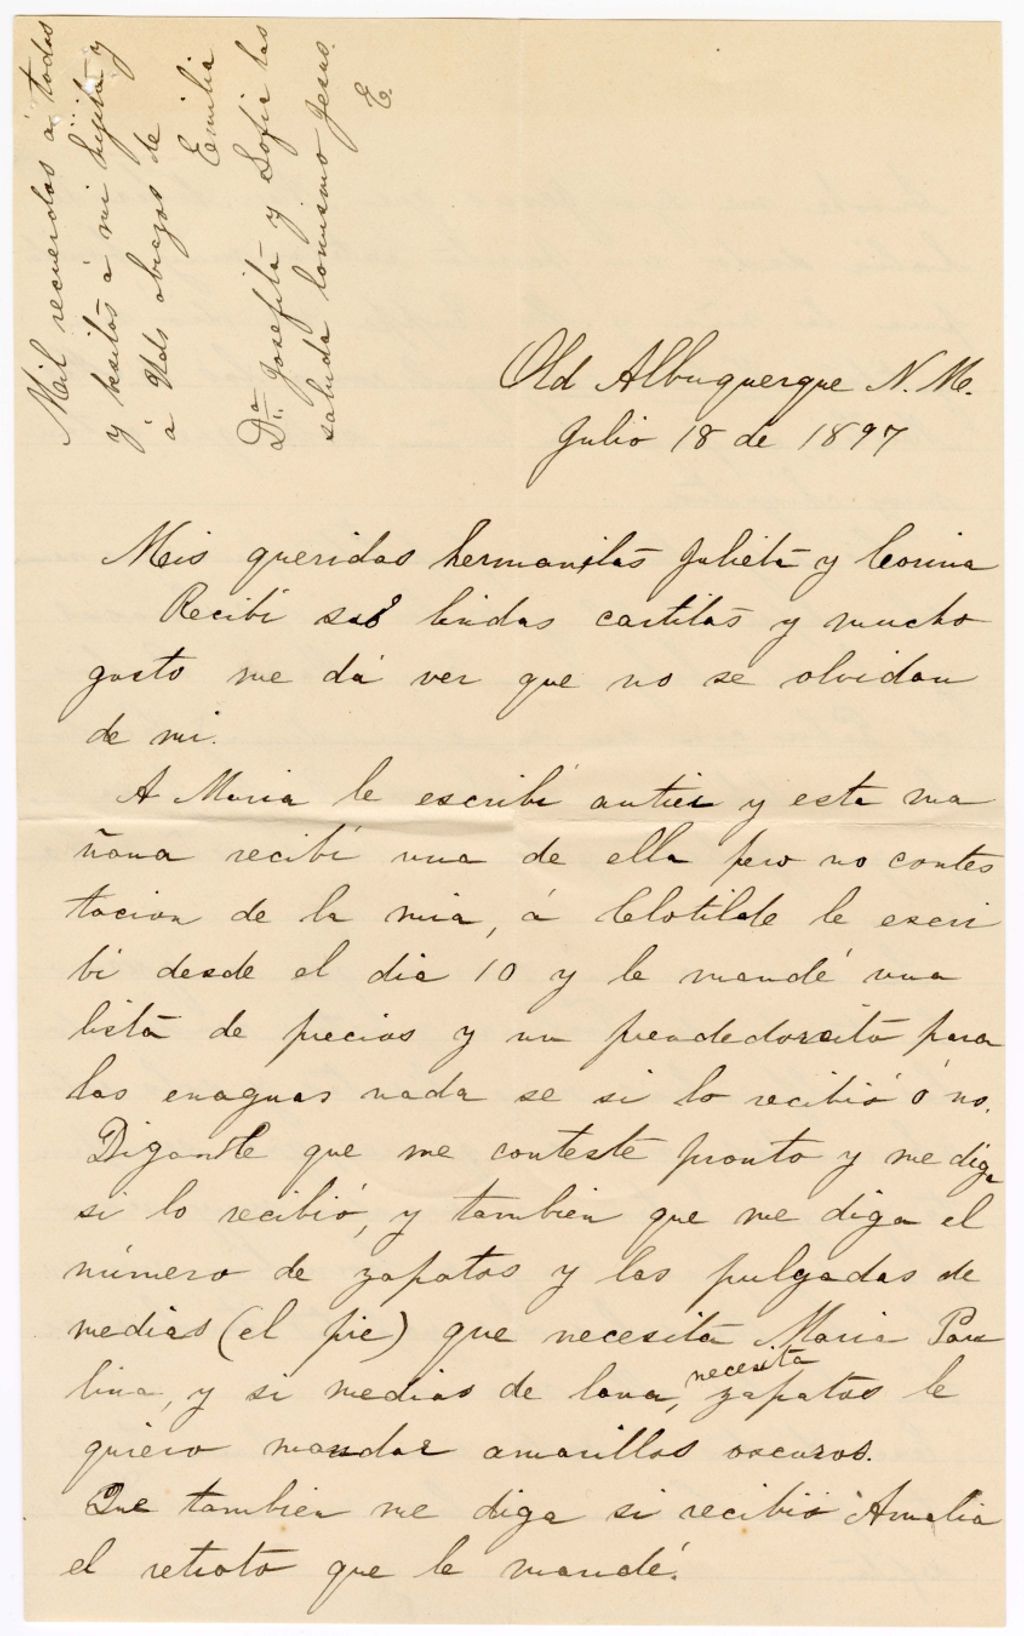 Mil recuerdos á todas
y besitos á mi hijita y
a Uds abrazos de
Emilia
Da. Josefita y Sofia las
saluda lo mismo Jesus.
E.
Old Albuquerque N. Me.
Julio 18 de 1897
Mis queridas hermanitas Julieta y Corina
Recibí sus lindas cartitas y mucho
gusto me dá ver que no se olvidan
de mi.
A Maria le escribí antier y esta ma
ñana recibí una de ella pero no contes
tacion de la mia, á Clotilde le escri
bi desde el dia 10 y le mandé una
lista de precios y un prendedorcito para
las enaguas nada se si lo recibió ó no.
Diganle que me conteste pronto y me diga
si lo recibió, y tambien que me diga el
número de zapatos y las pulgadas de
medias (el pie) que necesita Maria Pau
lina, y si necesita medias de lana, zapatos le
quiero mandar amarillos oscuros.
Que tambien me diga si recibió Amalia
el retrato que le mandé.